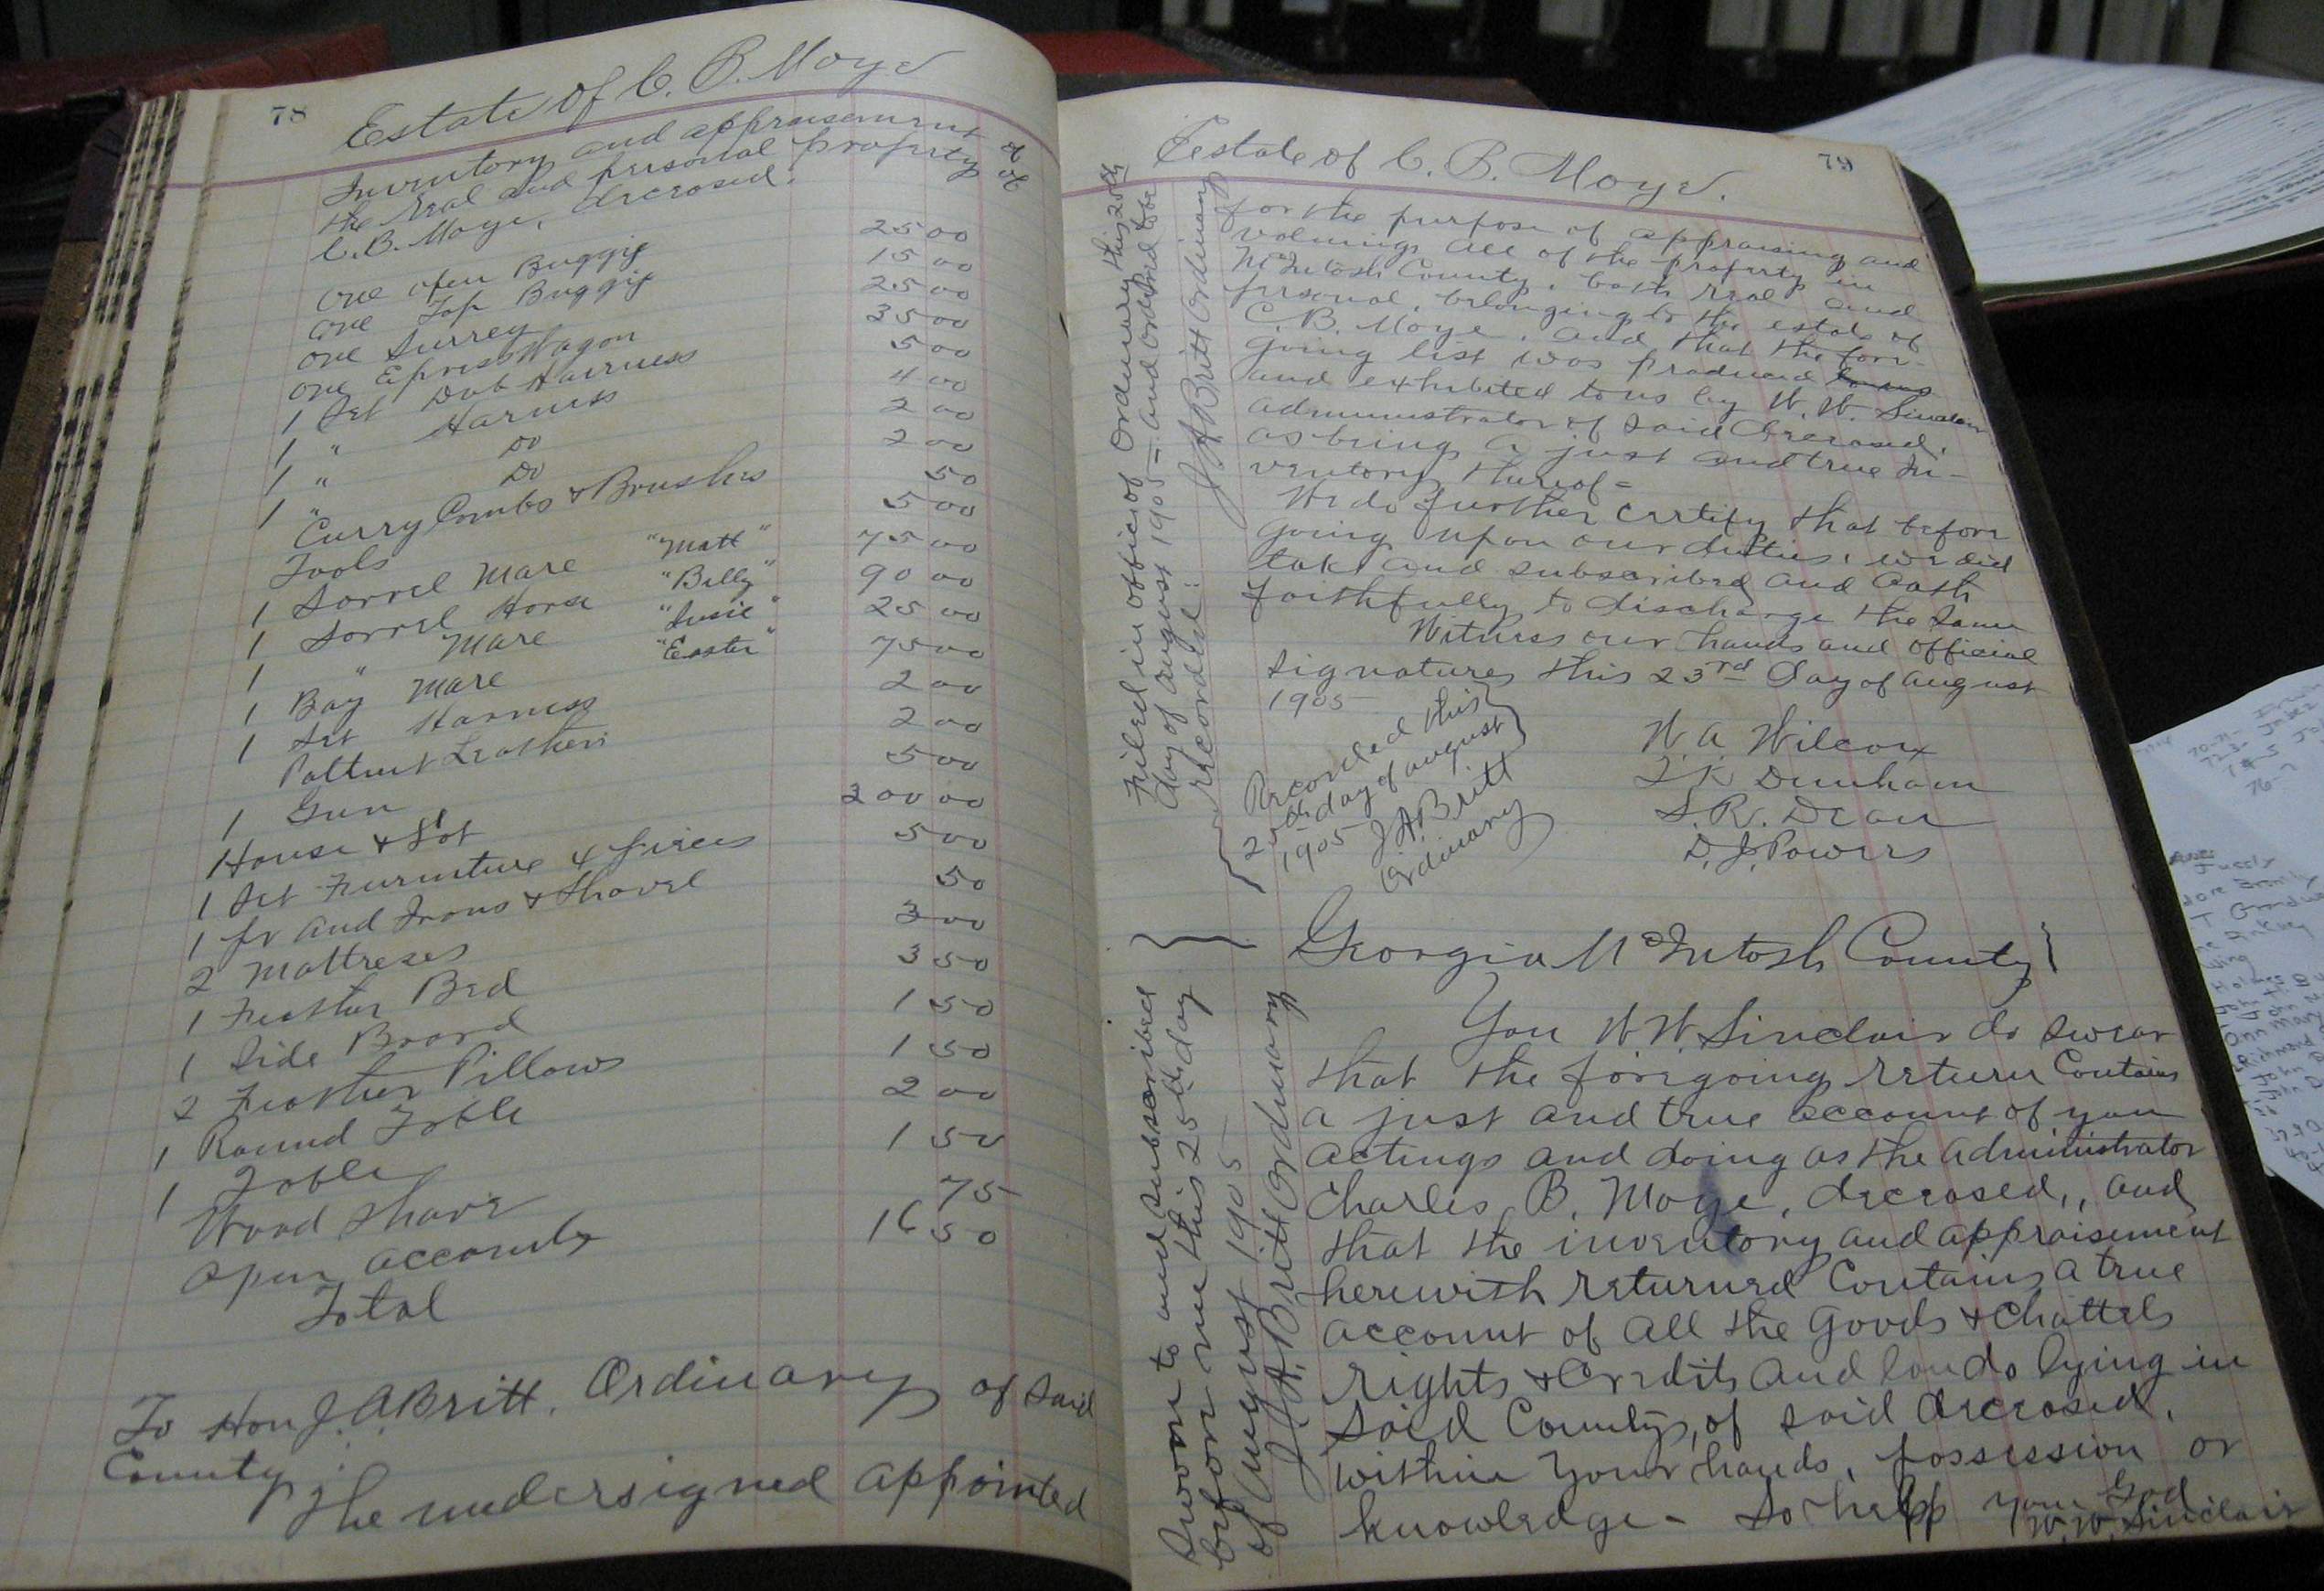 78
Estate of C. B. Moye
Inventory and appraisement of
the real and personal property of
C. B. Moye, deceased.
One open Buggy 25 00
One Top Buggy 15 00
One Surrey 25 00
One Epress Wagon 35 00
1 Set Dub Hairness 5 00
1 " Harness 4 00
1 " Do 2 00
1 " Do 2 00
Curry Combs & Brushes 50
Tools 5 00
1 Sorrel Mare "Matt" 75 00
1 Sorrel Horse "Billy" 90 00
1 " Mare "Susie" 25 00
1 Bay Mare "Easter" 75 00
1 Set Harness 2 00
Pattent Leather 2 00
1 Gun 5 00
House & Lot 200 00
1 Set Furniture 4 pieces 5 00
1 pr and Irons & Shovel 50
2 Mattreses 3 00
1 Feather Bed 3 50
1 Side Board 1 50
2 Feather Pillows 1 50
1 Round Table 2 00
1 Table 1 50
Wood Shave 75
Open accounts 16 50
Total
To Hon J. A. Britt, Ordinary of said
County:
The undersigned appointed
79
Estate of C. B. Moye.
for the purpose of appraising and
valuing all of the property in
McIntosh County, both real and
personal, belonging to the estate of
C. B. Moye, and that the fore-
going list was produced
and exhibited to us by W. W. Sinclair
administrator of said deceased,
as being a just and true in-
ventory thereof =
We do further certify that before
going upon our duties, we did
take and subscribed and oath
faithfully to discharge the same
Witness our hands and official
signatures this 23rd day of august
1905
W. A. Wilcox
T. K. Dunham
S. R. Dean
D. J. Powers
Recorded this
day of august
1905 J A Britt
Ordinary
Fileed in office of Ordinary this 25th
day of august 1905 = and ordered to be
recorded:
J A Britt Ordinary
Georgia McIntosh County
You W W. Sinclair do swear
that the foregoing return Contains
a just and true account of your
actings and doing as the administrator
Charles B. Moye, deceased,, and
that the inventory and appraisement
herewith returned Contains a true
account of all the goods & chattels
rights & Credits and lands lying in
said County, of said deceased,
within your hands, possession or
knowledge - So help you God
W. W. Sinclair
Sworn to and subscribed
before me this 25th day
of August 1905
J. A. Britt Ordinary